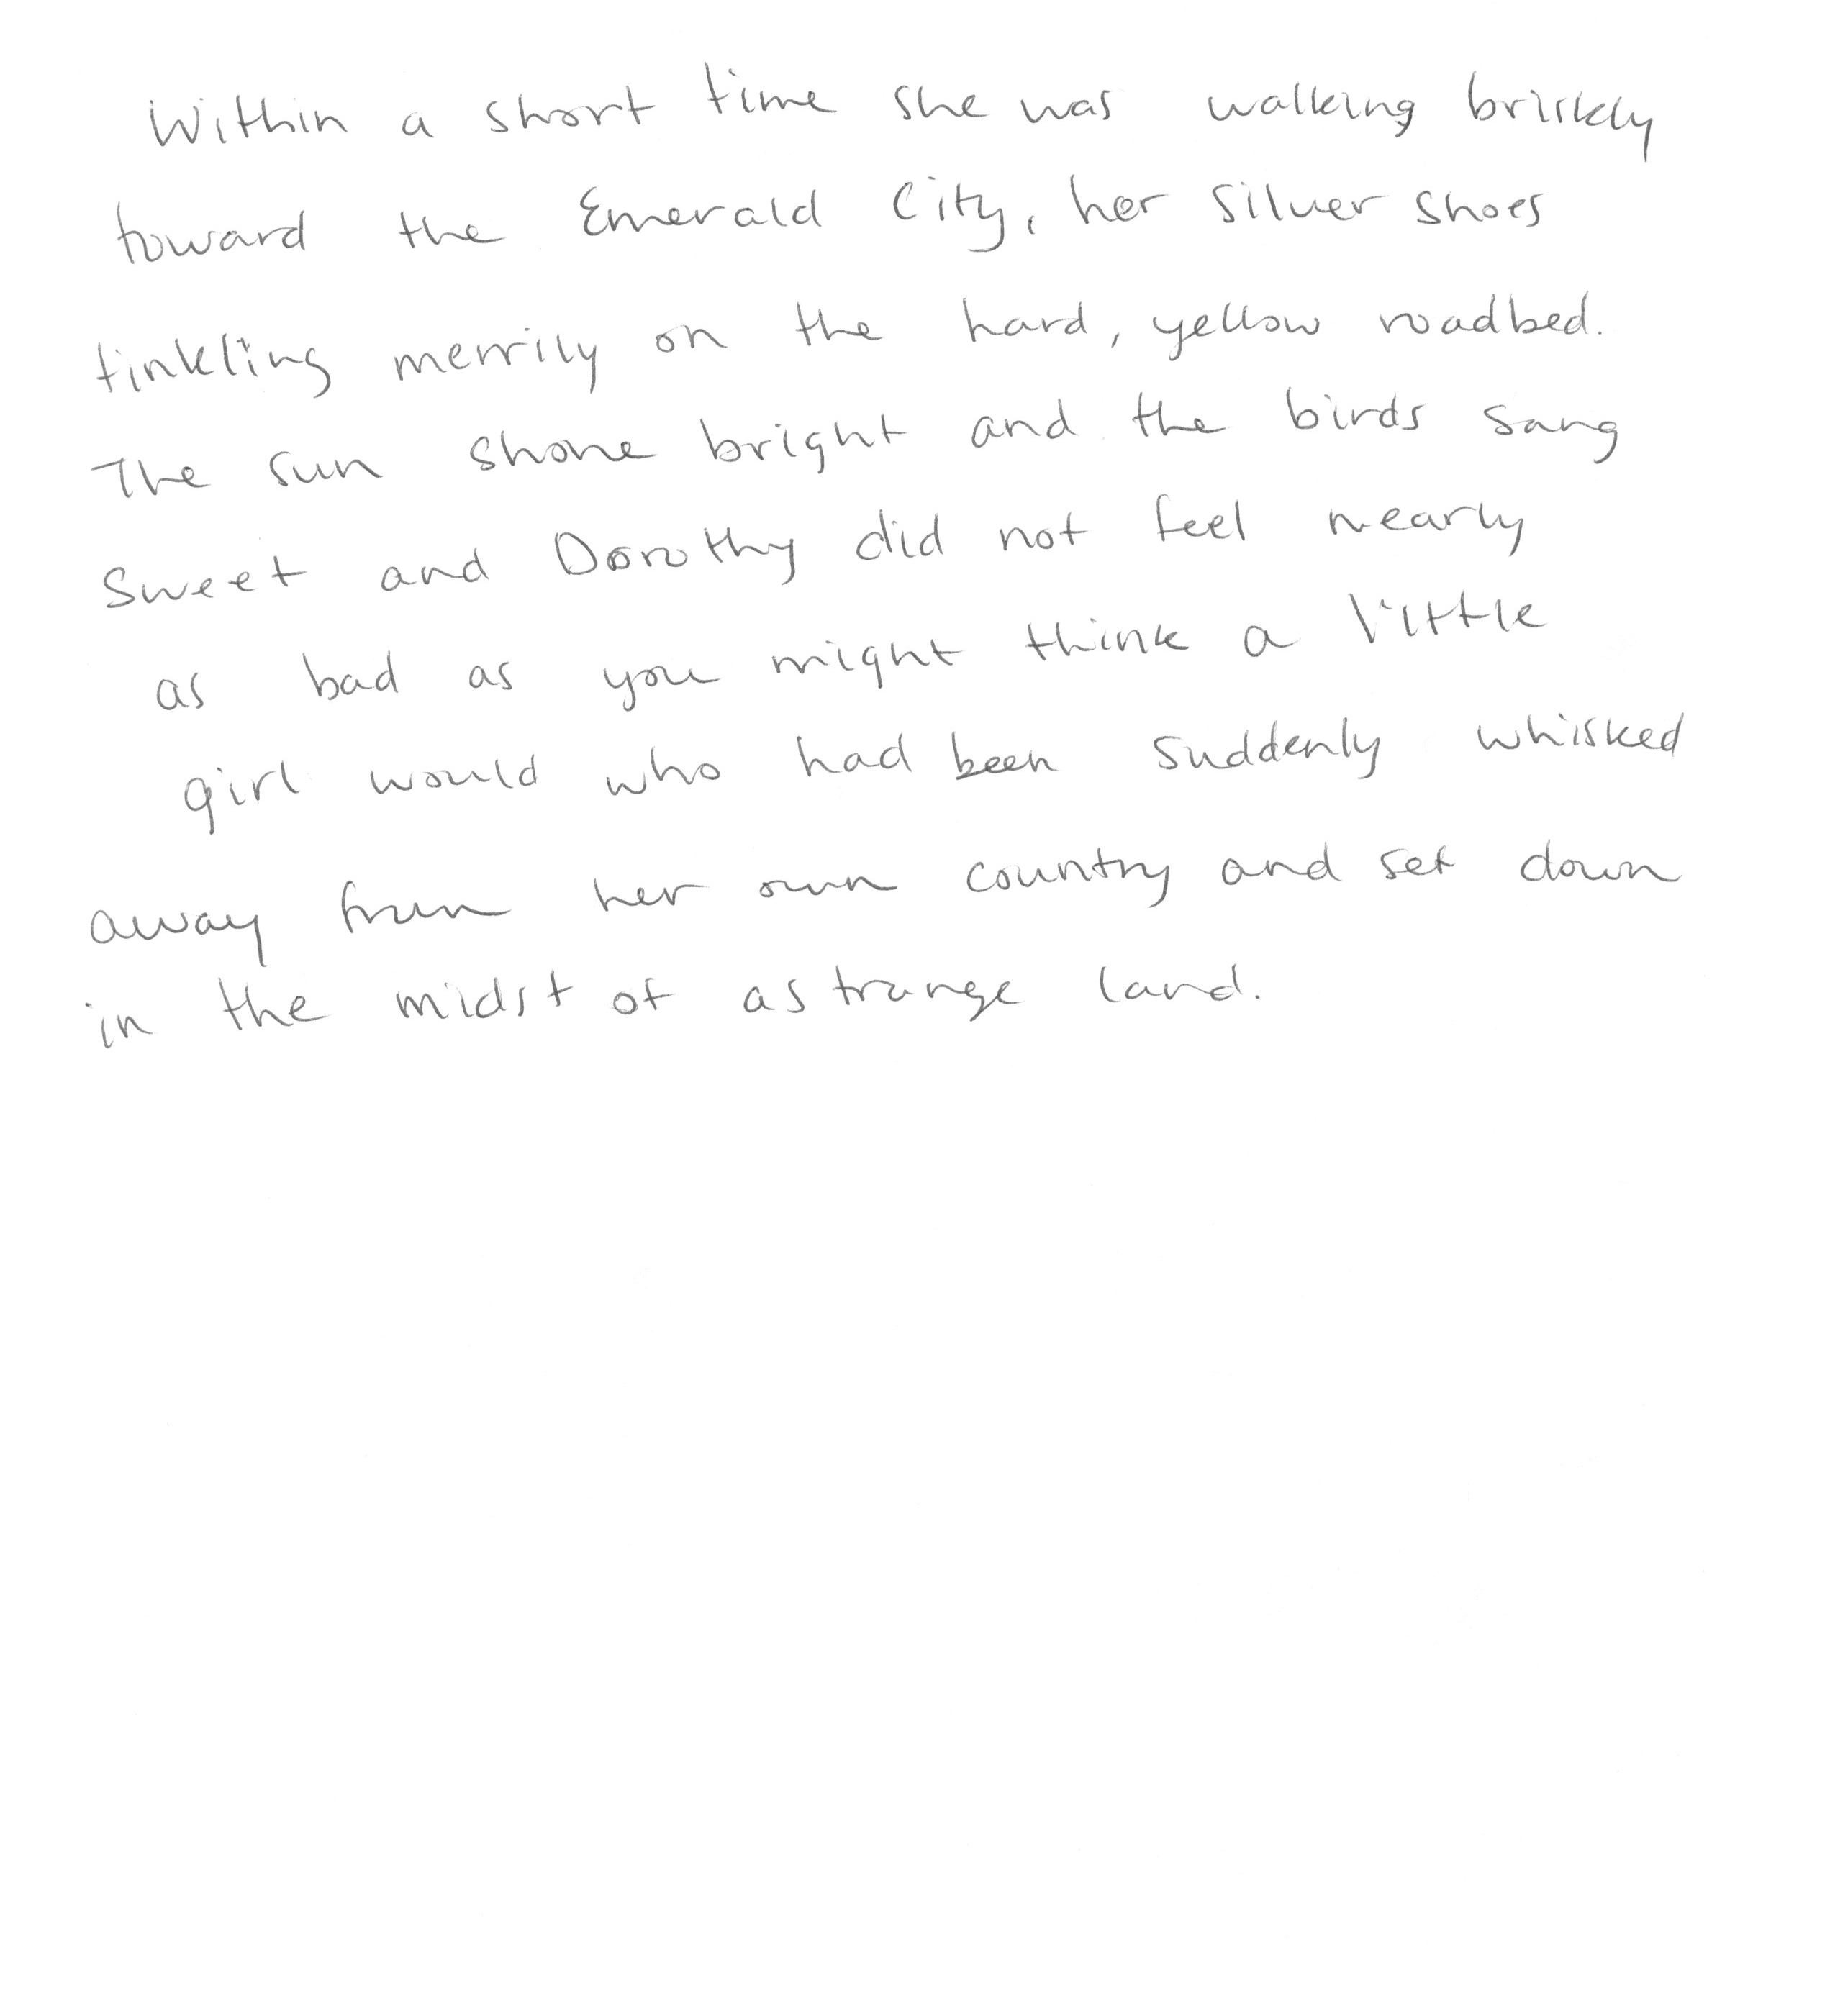 Within a short time she was walking briskly
toward the Emerald City, her silver shoes
tinkling merrily on the hard, yellow roadbed.
The sun shone bright and the birds sang
sweet and Dorothy did not feel nearly
as bad as you might think a little
girl would who had been suddenly whisked
away from her own country and set down
in the midst of a strange land.